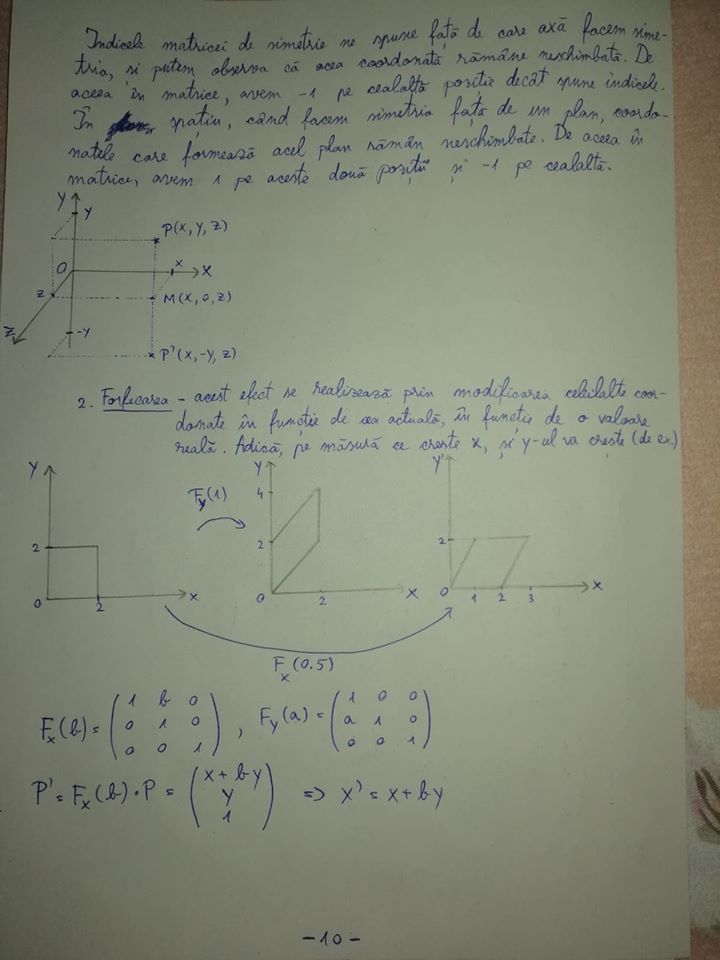 Indicele matricei de simetrie ne spune față de care axă facem sime-
tria, și putem observa că acea coordonată rămâne neschimbată. De
aceea în matrice, avem -1 pe cealaltă poziție decât spune indicele.
În spațiu, când facem simetria față de un plan, coordo-
natele care formează acel plan rămân neschimbate. De aceea în
matrice, avem 1 pe aceste două poziții și -1 pe cealaltă.
Y
Y
P(X, Y, Z)
O
X
X
Z
M(X, 0, Z)
Z
-Y
P'(X, -Y, Z)
2. Forfecarea - acest efect se realizează prin modificarea celeilalte coor-
donate în funcție de cea actuală, în funcție de o valoare
reală. Adică, pe măsură ce crește X, și y-ul va crește (de ex.)
Y
2
0
2
X
Fy(1)
Y
4
2
0
2
X
Y'
2
0
1
2
3
X
Fx(0.5)
Fx(b) = (1 b 0 , Fy(a) = (1 0 0
0 1 0 a 1 0
0 0 1) 0 0 1)
P' = Fx(b) · P = (x + by
y
1) => X' = X + by
-10-